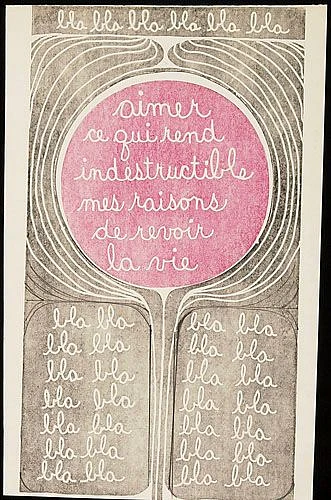 bla bla bla bla bla bla
aimer
ce qui rend
indestructible
mes raisons
de revoir
la vie
bla bla
bla bla
bla bla
bla bla
bla bla
bla bla
bla bla
bla bla
bla bla
bla bla
bla bla
bla bla
bla bla
bla bla